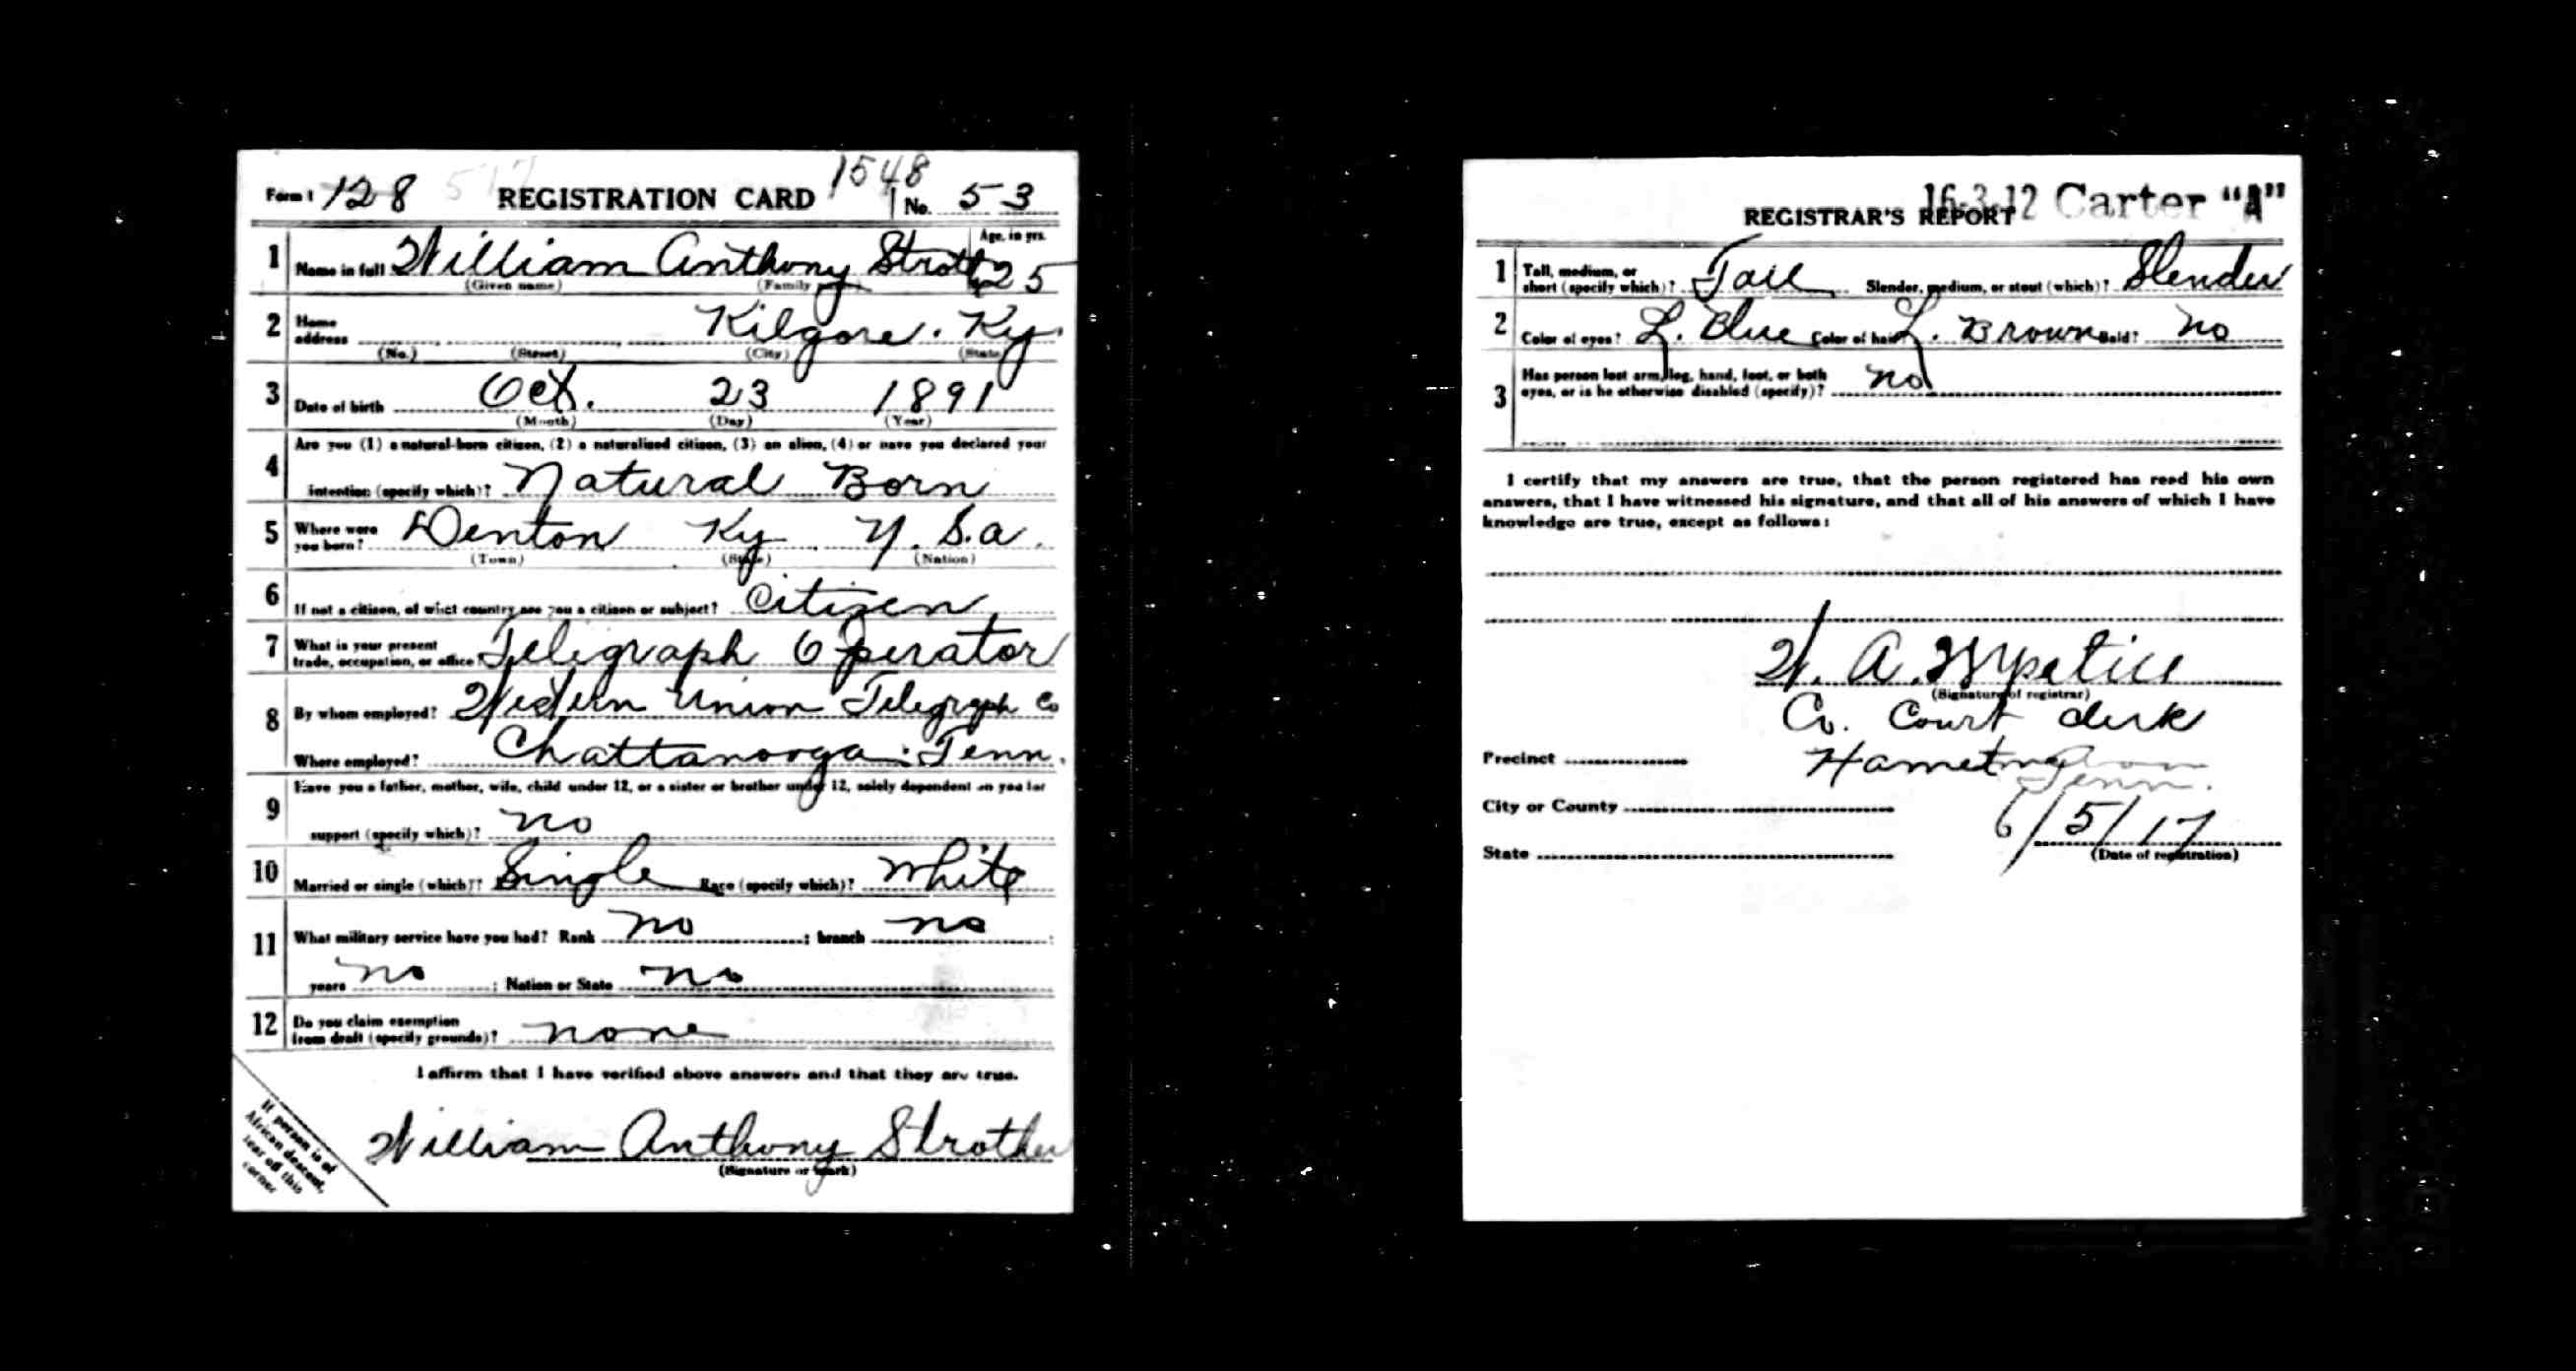 Form 1 128 517 REGISTRATION CARD 1548 No. 53
1 Name in full William Anthony Stroth 25 Age, in yrs.
(Given name) (Family name)
2 Home address Kilgore. Ky.
(No.) (Street) (City) (State)
3 Date of birth Oct. 23 1891
(Month) (Day) (Year)
4 Are you (1) a natural-born citizen, (2) a naturalized citizen, (3) an alien, (4) or have you declared your
intention (specify which)? Natural Born
5 Where were you born? Denton Ky U.S.a.
(Town) (State) (Nation)
6 If not a citizen, of what country are you a citizen or subject? Citizen
7 What is your present trade, occupation, or office? Teligraph Operator
8 By whom employed? Western Union Telegraph Co
Where employed? Chattanooga. Tenn.
9 Have you a father, mother, wife, child under 12, or a sister or brother under 12, solely dependent on you for
support (specify which)? no
10 Married or single (which)? Single Race (specify which)? White
11 What military service have you had? Rank no ; branch no ;
years no ; Nation or State no
12 Do you claim exemption from draft (specify grounds)? none
I affirm that I have verified above answers and that they are true.
William Anthony Strother
(Signature or mark)
If person is of
African descent,
tear off this
corner
16-3-12 Carter "A"
REGISTRAR'S REPORT
1 Tall, medium, or short (specify which)? Tall Slender, medium, or stout (which)? Slender
2 Color of eyes? L. Blue Color of hair? L. Brown Bald? No
3 Has person lost arm, leg, hand, foot, or both
eyes, or is he otherwise disabled (specify)? no
I certify that my answers are true, that the person registered has read his own
answers, that I have witnessed his signature, and that all of his answers of which I have
knowledge are true, except as follows:
W. A.
(Signature of registrar)
Co. Court Clerk
Precinct
Tenn.
City or County
6/5/17
State
(Date of registration)